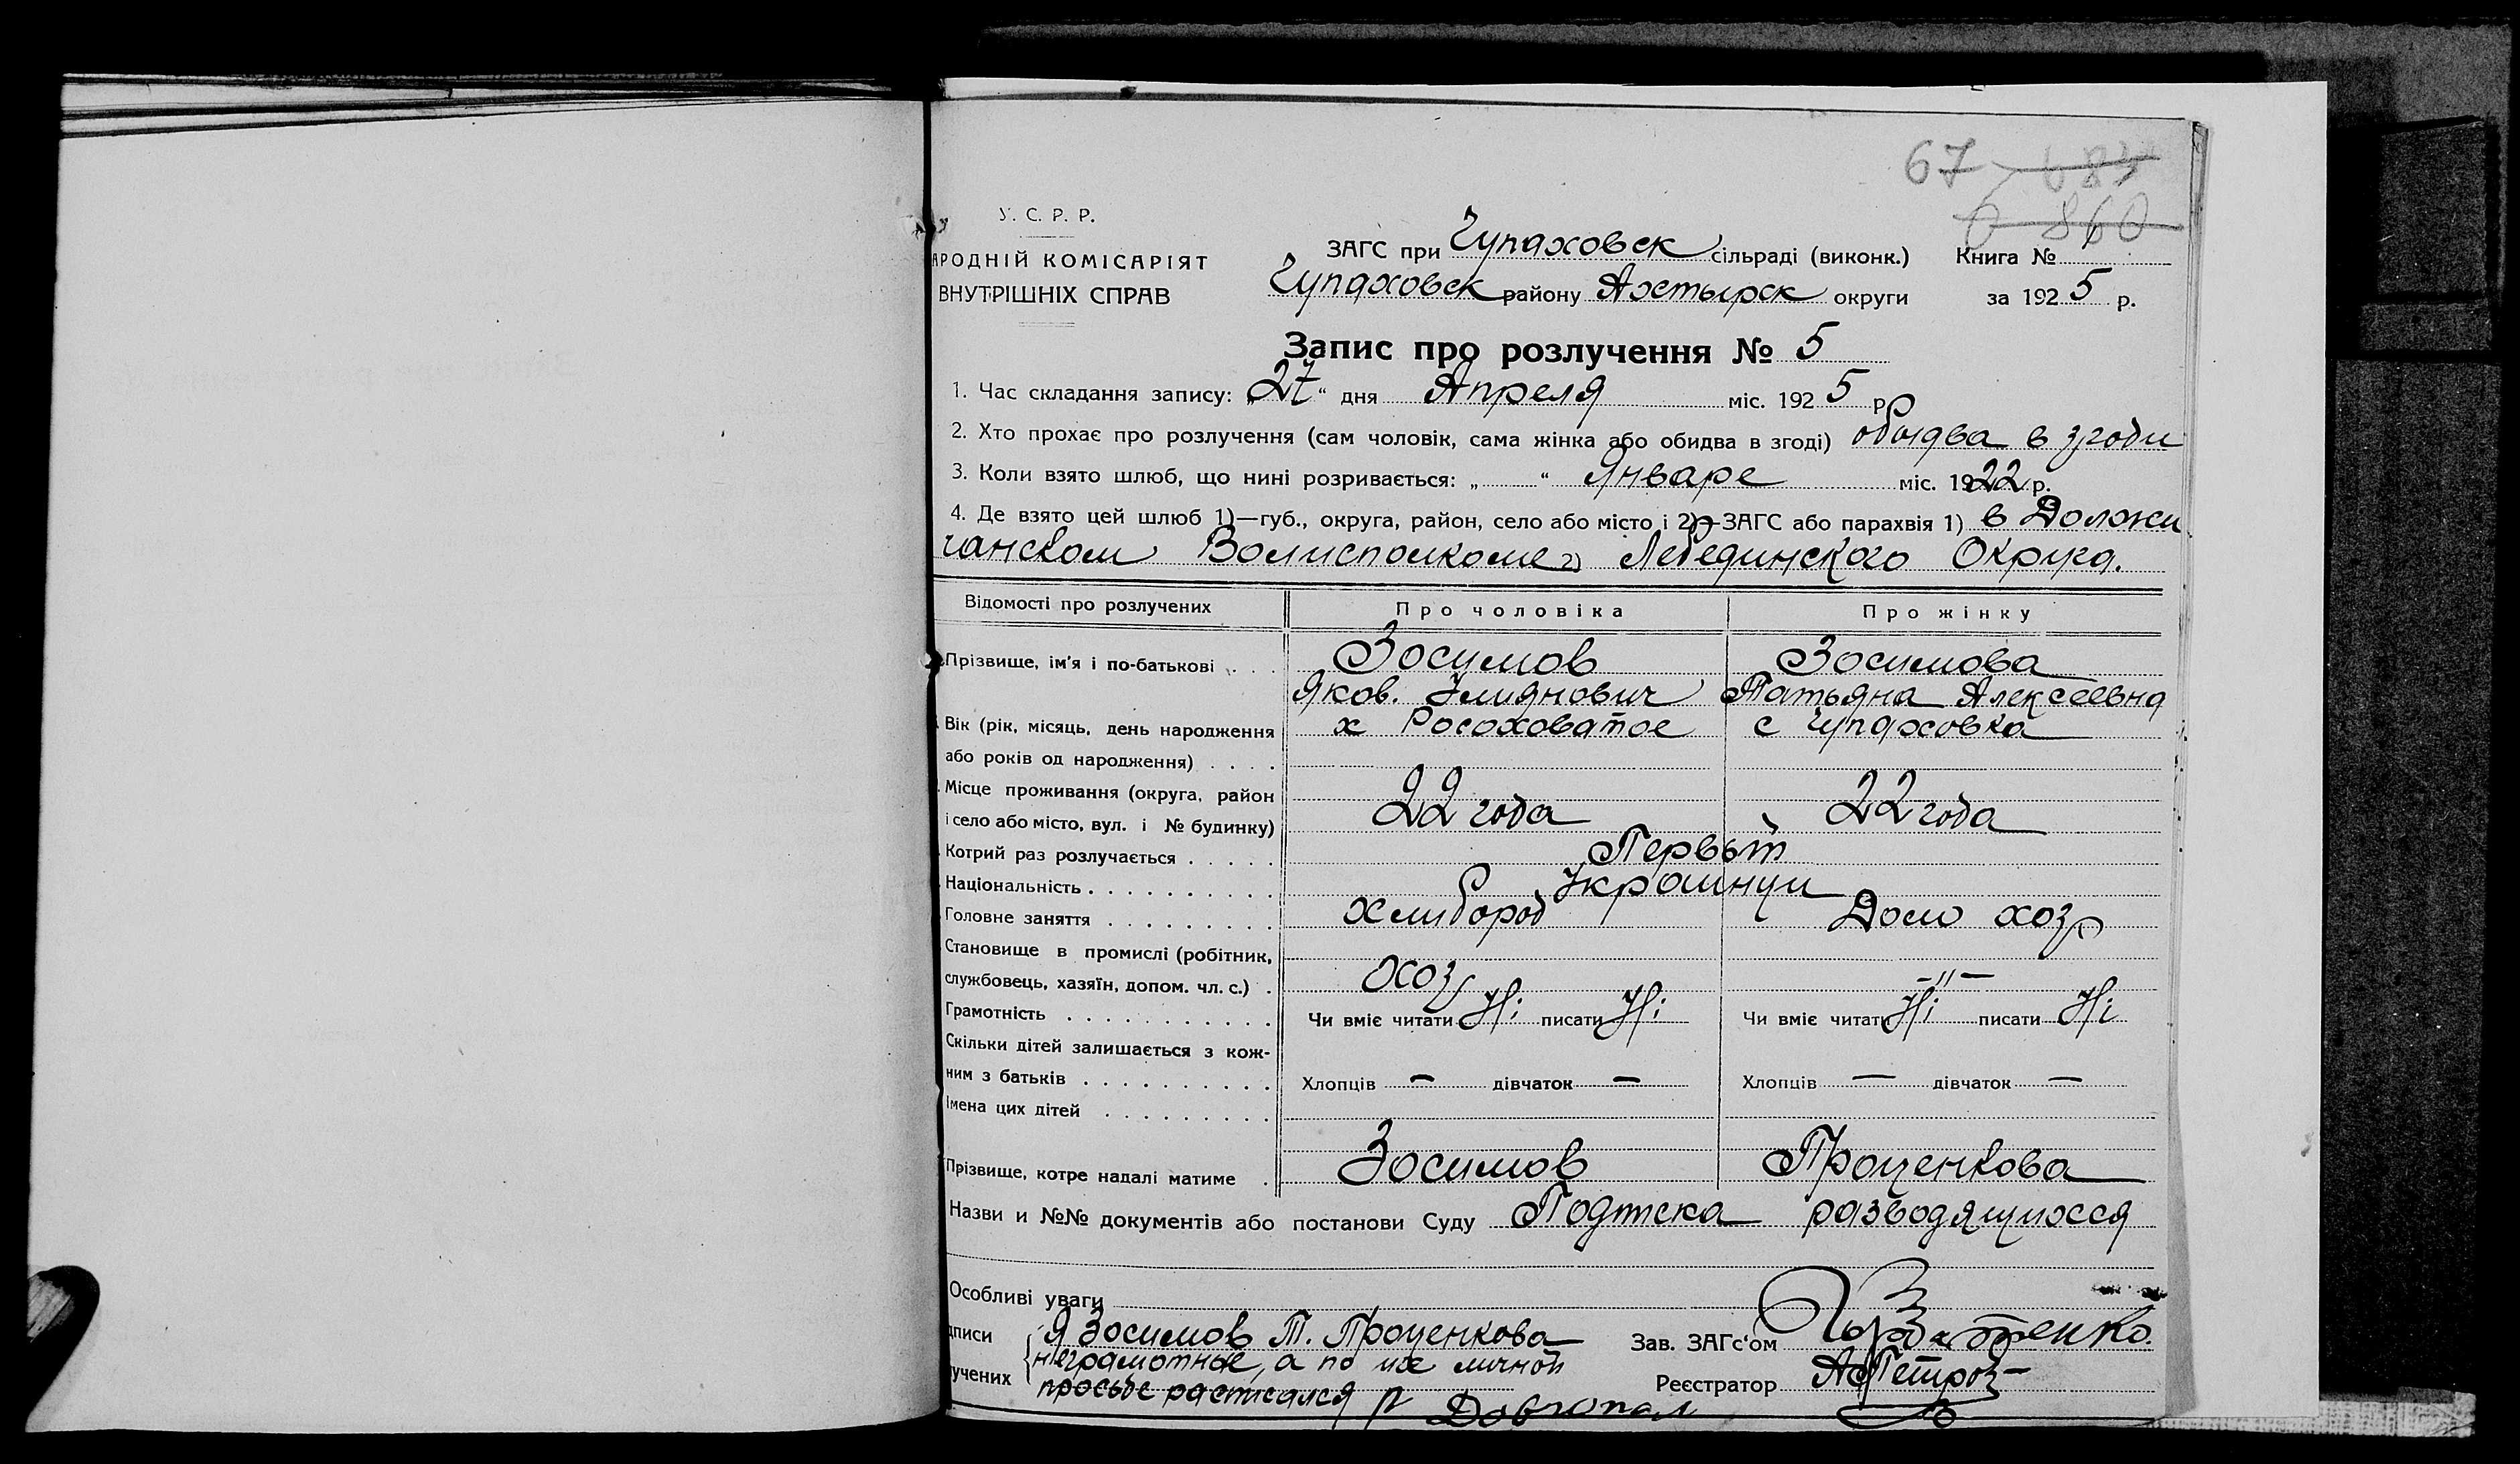 67 683
0 860
У. С. Р. Р.
АРОДНІЙ КОМІСАРІЯТ
ВНУТРІШНІХ СПРАВ
ЗАГС при Чупаховск сільраді (виконк.) Книга №
Чупаховск району Ахтырск округи за 1925 р.
Запис про розлучення № 5
1. Час складання запису: „27“ дня Апреля міс. 1925 р
2. Хто прохає про розлучення (сам чоловік, сама жінка або обидва в згоді) обидва в згоди
3. Коли взято шлюб, що нині розривається: „ “ Январе міс. 1922 р.
4. Де взято цей шлюб 1)—губ., округа, район, село або місто і 2)—ЗАГС або парахвія 1) в Должи
чанском Волисполкоме 2) Лебединского Округа.
Відомості про розлучених Про чоловіка Про жінку
Прізвище, ім'я і по-батькові . . . Зосимов Зосимова
Яков. Емиянович Татьяна Алексеевна
Вік (рік, місяць, день народження х Росоховатое с Чупаховка
або років од народження) . . . .
Місце проживання (округа, район
і село або місто, вул. і № будинку) 22 года 22 года
Котрий раз розлучається . . . . . Первый
Національність . . . . . . . . . . Украинци
Головне заняття . . . . . . . . . хлибороб Дом хоз
Становище в промислі (робітник,
службовець, хазяїн, допом. чл. с.) . хоз —"—
Грамотність . . . . . . . . . . . Чи вміє читати Ні писати Ні Чи вміє читати Ні писати Ні
Скільки дітей залишається з кож-
ним з батьків . . . . . . . . . . Хлопців — дівчаток — Хлопців — дівчаток —
Імена цих дітей . . . . . . . . .
Прізвище, котре надалі матиме . Зосимов Проценкова
Назви и №№ документів або постанови Суду Подписка разводящихся
Особливі уваги
дписи Я Зосимов Т. Проценкова Зав. ЗАГс'ом
неграмотные, а по их личной
учених просьбе расписался Довгопол Реєстратор